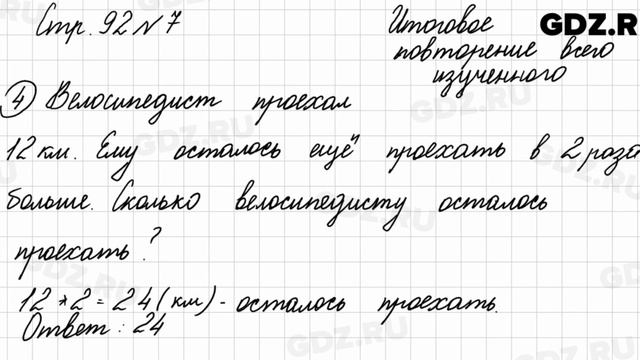 Стр. 92 № 7
Итоговое
повторение всего
изученного
GDZ.R
4 Велосипедист проехал
12 км. Ему осталось ещё проехать в 2 роза
больше. Сколько велосипедисту осталось
проехать?
12 * 2 = 24 (км) - осталось проехать.
Ответ: 24